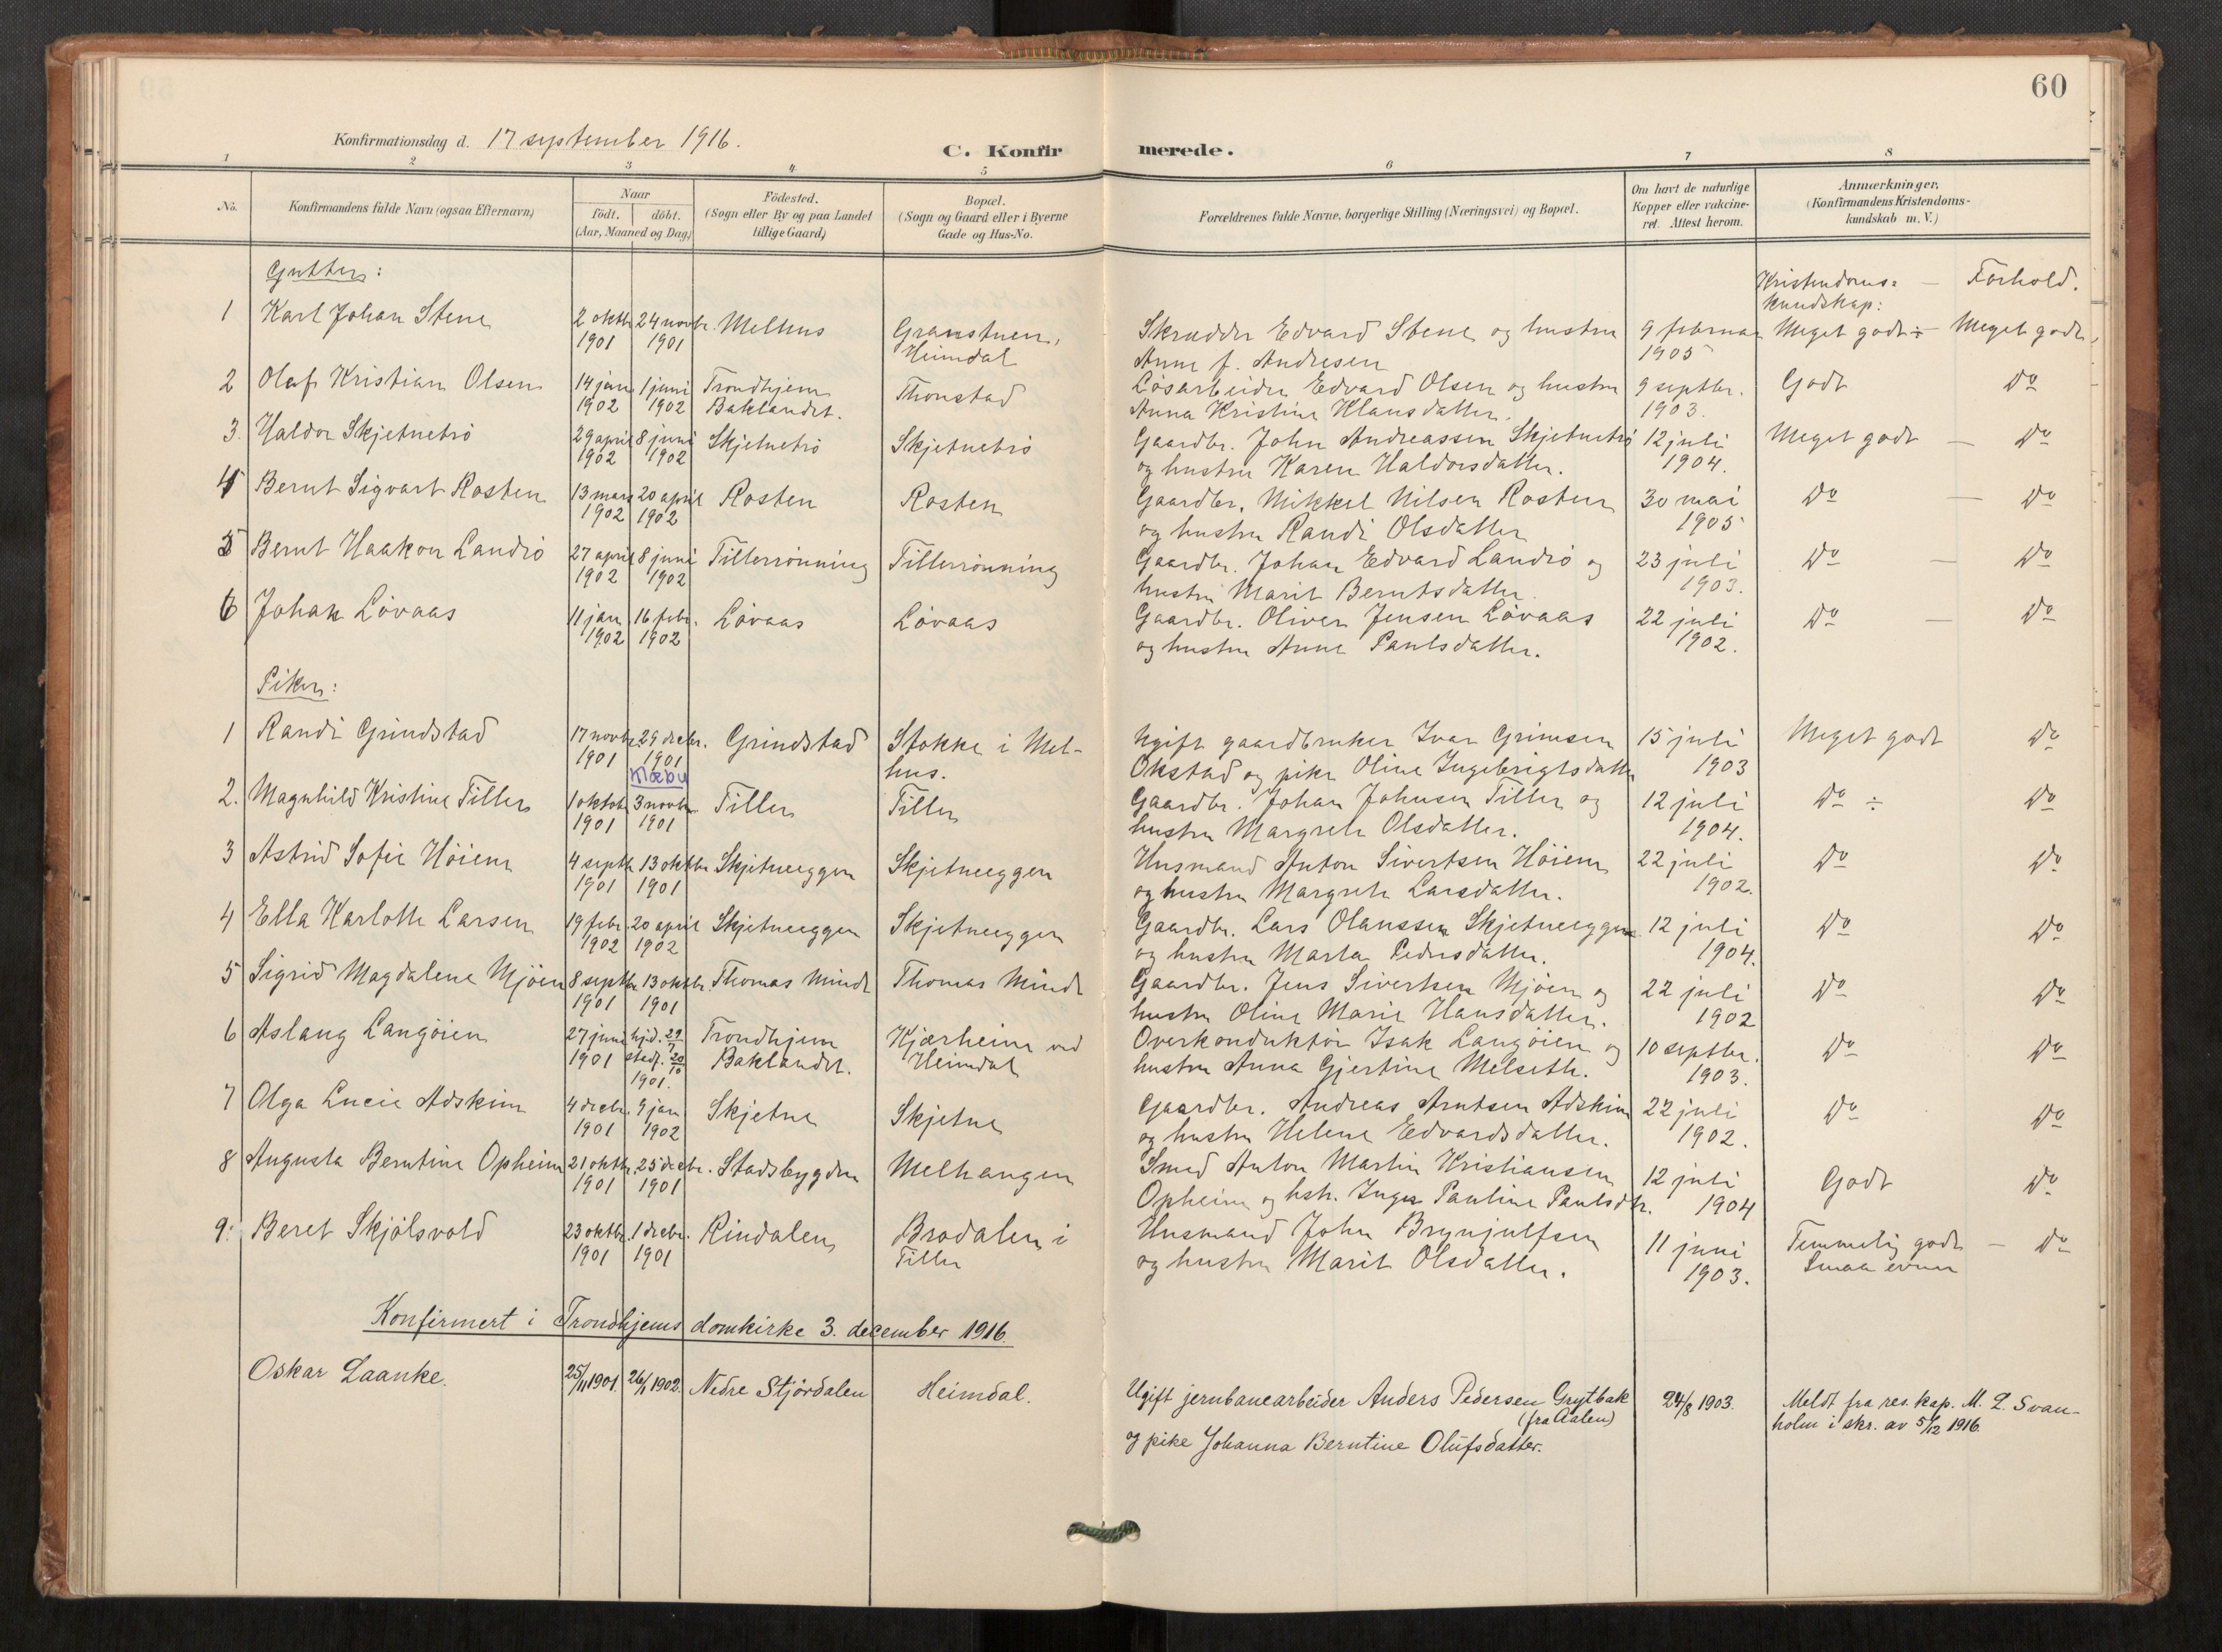 60
Konfirmationsdag d. 17 september 1916.
C. Konfirmerede.
1 2 3 4 5 6 7 8
No.
Konfirmandens fulde Navn (ogsaa Efternavn)
Naar
födt. döbt.
(Aar, Maaned og Dag.)
Födested.
(Sogn eller By og paa Landet
tillige Gaard)
Bopæl.
(Sogn og Gaard eller i Byerne
Gade og Hus-No.
Forældrenes fulde Navne, borgerlige Stilling (Næringsvei) og Bopæl.
Om havt de naturlige
Kopper eller vakcine-
ret. Attest herom.
Anmærkninger.
(Konfirmandens Kristendoms-
kundskab m. V.)
Gutter:
Kristendoms= — Forhold.
kundskap:
1 Karl Johan Stene 2 oktbr. 24 novbr. Melhus Granstuen, Skrædder Edvard Stene og hustru 9 februar Meget godt ÷ Meget godt
1901 1901 Heimdal Anne f. Andresen 1905
2 Olaf Kristian Olsen 14 jan 1 juni Trondhjem Thonstad Løsarbeider Edvard Olsen og hustru 9 septbr. Godt Do
1902 1902 Baklandet. Anna Kristine Klausdatter. 1903.
3. Haldor Skjetnetrö 29 april 8 juni Skjetnetrö Skjetnetrö Gaardbr. John Andreassen Skjetnetrö 12 juli Meget godt — Do
1902 1902 og hustru Karen Haldorsdatter. 1904.
4 Bernt Sigvart Rosten 13 mars 20 april Rosten Rosten Gaardbr. Mikkel Nilsen Rosten 30 mai Do — Do
1902 1902 og hustru Randi Olsdatter 1905
5 Bernt Haakon Landrö 27 april 8 juni Tillerrönning Tillerrönning Gaardbr. Johan Edvard Landrö og 23 juli Do — Do
1902 1902 hustru Marit Berntsdatter. 1903.
6 Johan Lövaas 11 jan. 16 febr. Lövaas Lövaas Gaardbr. Oliver Jensen Lövaas 22 juli Do — Do
1902 1902 og hustru Anne Paulsdatter. 1902.
Piker:
1 Randi Grindstad 17 novbr. 29 decbr. Grindstad Stokke i Mel- Ugift gaardbruker Ivar Grimsen 15 juli Meget godt Do
1901 1901 hus. Okstad og pike Oline Ingebrigtsdatter 1903
Klæbu
2. Magnhild Kristine Tiller 1 oktobr 3 novbr Tiller Tiller Gaardbr. Johan Johnsen Tiller og 12 juli Do ÷ Do
1901 1901 hustru Margrete Olsdatter. 1904.
3 Astrid Sofie Höiem 4 septbr 13 oktbr Skjetneeggen Skjetneeggen Husmand Anton Sivertsen Höiem 22 juli Do Do
1901 1901 og hustru Margrete Larsdatter. 1902.
4 Ella Karlotte Larsen 19 febr. 20 april Skjetneeggen Skjetneeggen Gaardbr. Lars Olaussen Skjetneeggen 12 juli Do Do
1902 1902 og hustru Marta Pedersdatter. 1904.
5 Sigrid Magdalene Mjöen 8 septbr. 13 oktbr. Thomas Minde Thomas Minde Gaardbr. Jens Sivertsen Mjöen og 22 juli Do Do
1901 1901 hustru Oline Marie Hansdatter. 1902
6 Aslaug Langöien 27 juni hjd. 29/7 Trondhjem Kjærheim ved Overkonduktör Isak Langöien og 10 septbr. Do Do
1901 stadf. 20/10 Baklandet. Heimdal hustru Anna Gjertine Melseth. 1903.
1901.
7 Olga Lucie Adskim 4 decbr. 9 jan. Skjetne Skjetne Gaardbr. Andreas Arntsen Adskim 22 juli Do Do
1901 1902 og hustru Helene Edvardsdatter. 1902.
8 Augusta Berntine Opheim 21 oktbr. 25 decbr. Stadsbygden Melhaugen Smed Anton Martin Kristiansen 12 juli Godt Do
1901 1901 Opheim og hstr. Inger Pauline Paulsdtr. 1904
9. Beret Skjölsvold 23 oktbr. 1 decbr. Rindalen Brodalen i Husmand John Brynjulfsen 11 juni Temmelig godt — Do
1901 1901 Tiller og hustru Marit Olsdatter. 1903. Smaa evner
Konfirmert i Trondhjems domkirke 3. december 1916.
Oskar Laanke. 25/11 1901. 26/1 1902. Nedre Stjördalen Heimdal. Ugift jernbanearbeider Anders Pedersen Grytbak 24/8 1903. Meldt fra res. kap. M. L. Svan-
(fra Aalen) holm i skr. av 5/12 1916.
og pike Johanna Berntine Olufsdatter.